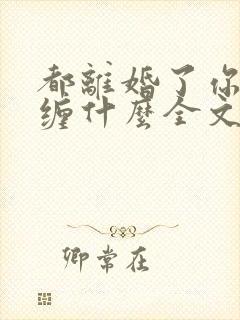 都離婚了你
缠什麼全文
卿常在